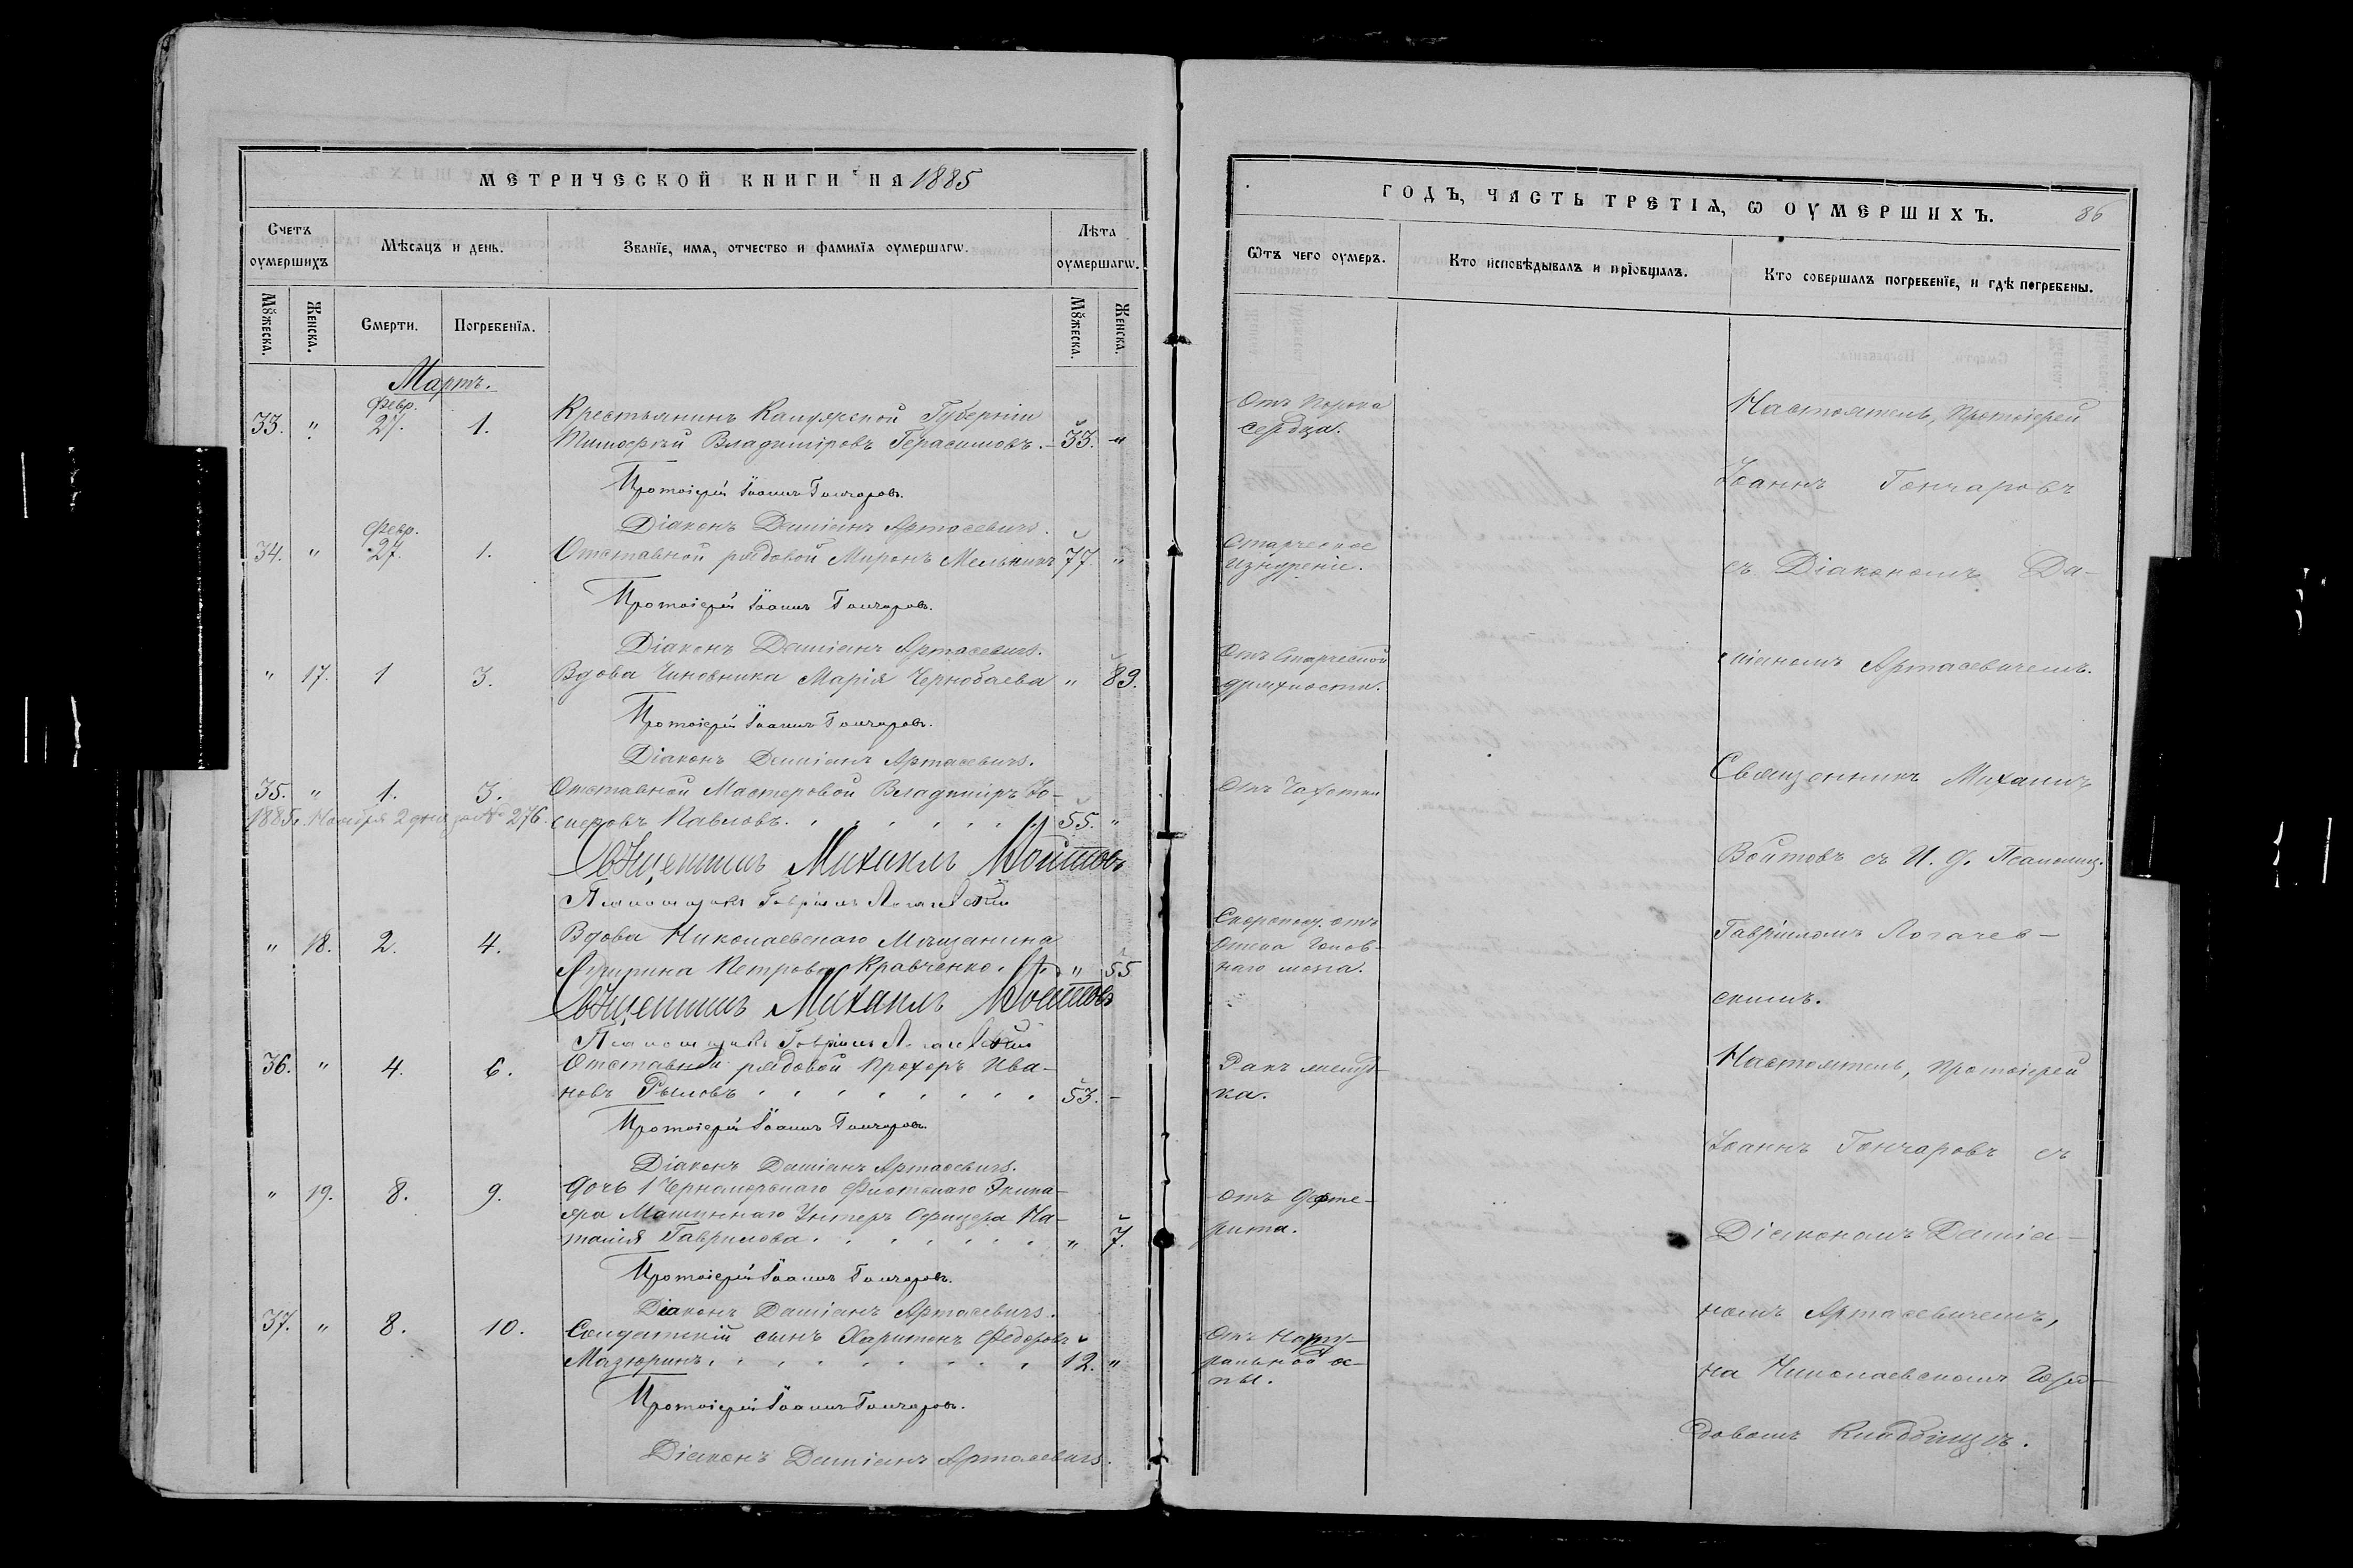 МЕТРИЧЕСКОЙ КНИГИ НА 1885
Счетъ оумершихъ
Мѣсяцъ и день.
Званїе, имя, отчество и фамилїя оумершагѡ.
Лѣта оумершагѡ.
Мꙋжеска.
Женска.
Смерти.
Погребенїя.
Мꙋжеска.
Женска.
Мартъ.
Февр.
33. " 27. 1. Крестьянинъ Калужской Губерніи
Тимофей Владиміровъ Герасимовъ. 33. "
Протоіерей Іоаннъ Гончаровъ.
Діаконъ Даміанъ Артасевичъ.
Февр.
34. " 27. 1. Отставной рядовой Миронъ Мельникъ 77. "
Протоіерей Іоаннъ Гончаровъ.
Діаконъ Даміанъ Артасевичъ.
" 17. 1 3. Вдова Чиновника Марія Чернобаева " 89.
Протоіерей Іоаннъ Гончаровъ.
Діаконъ Даміанъ Артасевичъ.
35. " 1. 3. Отставной Мастеровой Владиміръ Іо-
1885г. Ноября 2 дня за № 276. сиповъ Павловъ. 55. "
Священникъ Михаилъ Войтовъ
Псаломщикъ Гавріилъ Логачевскій
" 18. 2. 4. Вдова Николаевскаго Мѣщанина
Петрова Кравченко. " 55
Священникъ Михаилъ Войтовъ
Псаломщикъ Гавріилъ Логачевскій
36. " 4. 6. Отставной рядовой Прохоръ Ива-
новъ Рыловъ 53. -
Протоіерей Іоаннъ Гончаровъ.
Діаконъ Даміанъ Артасевичъ.
" 19. 8. 9. Дочь 1 Черноморскаго Флотскаго Экипа-
жа Машиннаго Унтеръ Офицера На-
талія Гаврилова. " 7.
Протоіерей Іоаннъ Гончаровъ.
Діаконъ Даміанъ Артасевичъ.
37. " 8. 10. Солдатскій сынъ Харитонъ Федоровъ
Мазюринъ. 12. "
Протоіерей Іоаннъ Гончаровъ.
Діаконъ Даміанъ Артасевичъ.
ГОДЪ, ЧАСТЬ ТРЕТІЯ, Ѡ ОУМЕРШИХЪ.
86
Ѿтъ чего оумеръ.
Кто исповѣдывалъ и прїобщалъ.
Кто совершалъ погребенїе, и гдѣ погребены.
Отъ порока
сердца.
Старческое
изнуреніе.
Отъ старческой
дряхлости.
Отъ Чахотки
Скоропост. отъ
отека голов-
наго мозга.
Ракъ желуд-
ка.
отъ дифте-
рита.
Отъ нату-
ральной о-
спы.
Настоятель, протоіерей
Іоаннъ Гончаровъ
съ Діакономъ Да-
міаномъ Артасевичемъ.
Священникъ Михаилъ
Войтовъ съ И. д. Псаломщ.
Гавріиломъ Логачев-
скимъ.
Настоятель, протоіерей
Іоаннъ Гончаровъ съ
Діакономъ Даміа-
номъ Артасевичемъ,
на Николаевскомъ Горо-
довомъ Кладбищѣ.